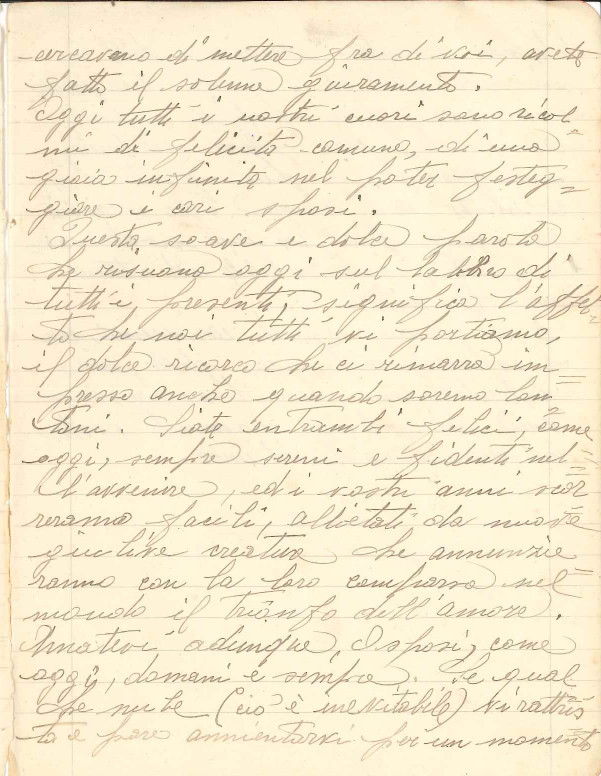 cercavano di mettere fra di voi, avete
fatto il solenne giuramento.
Oggi tutti i nostri cuori sono ricol=
mi di felicità comune, di una
gioia infinita nel poter festeg=
giare i cari sposi.
Questa soave e dolce parola
che risuona oggi sul labbro di
tutti i presenti, significa l'affet=
to che noi tutti vi portiamo,
il dolce ricordo che ci rimarrà im=
presso anche quando saremo lon
tani. Siate entrambi felici, come
oggi, sempre sereni e fidenti nel=
l'avvenire, ed i vostri anni scor=
reranno facili, allietati da nuove
giulive creature che annunzie=
ranno con la loro comparsa nel
mondo il trionfo dell'amore.
Amatevi adunque, o sposi, come
oggi, domani e sempre. Se qual
che nube (ciò è inevitabile) vi rattris=
ta e pare annientarvi per un momento